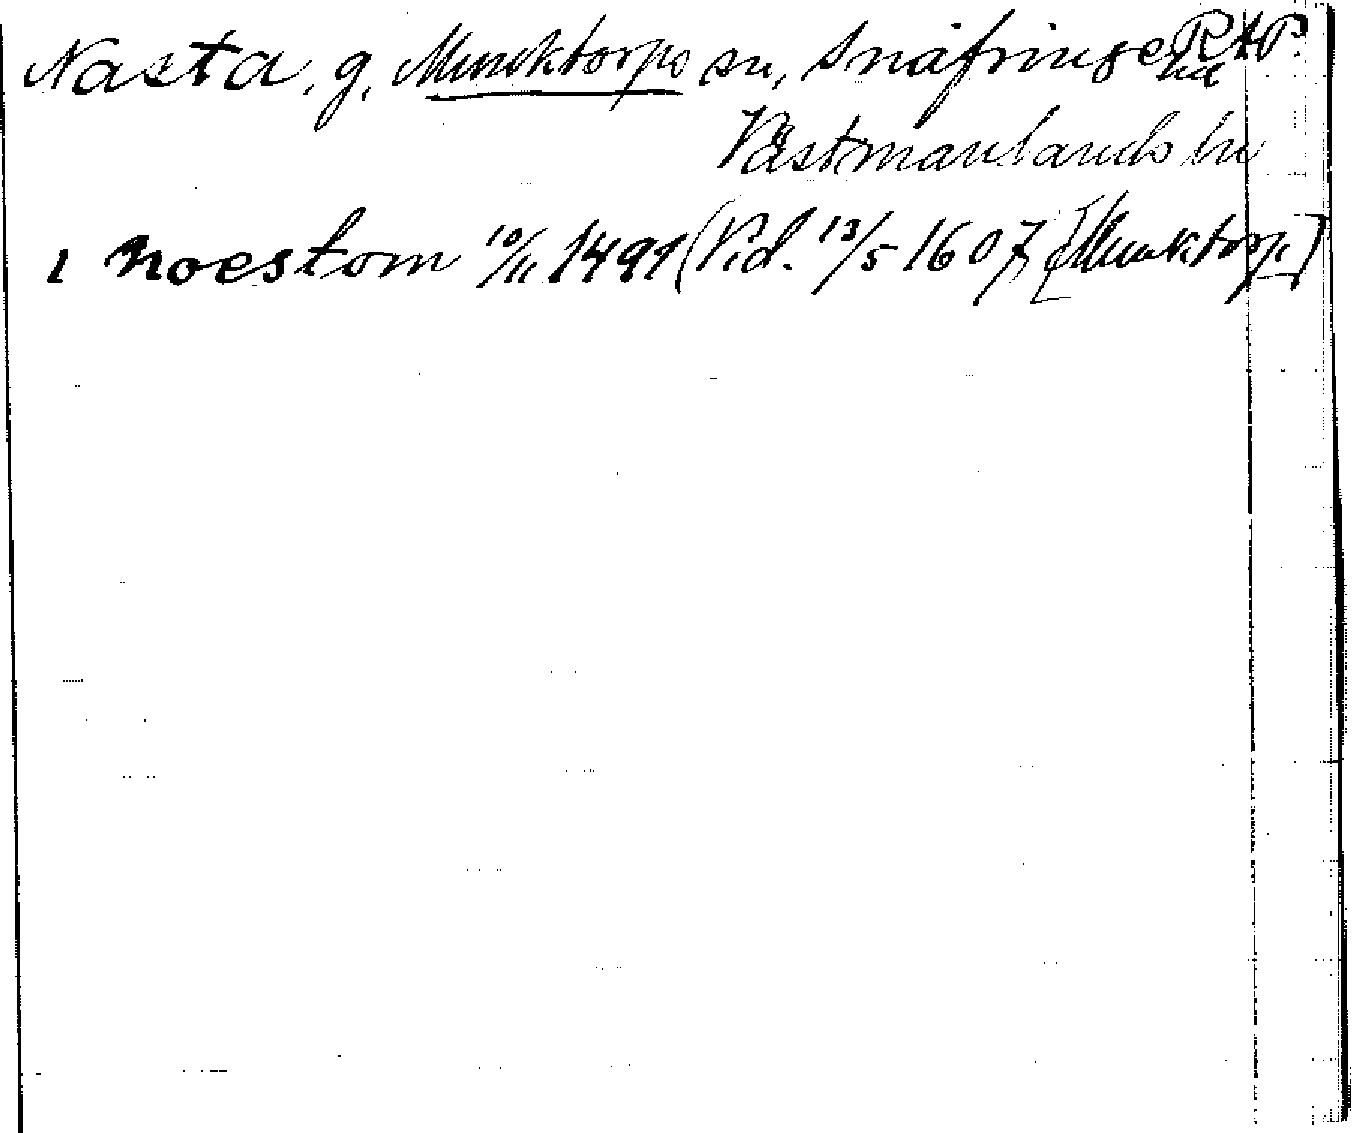 Nasta, g, Muncktorps sn, Snäfringe hd RAP.
Västmanlands län
i noestom 10/11 1491 (Vid. 13/5 1607) [Munktorp]